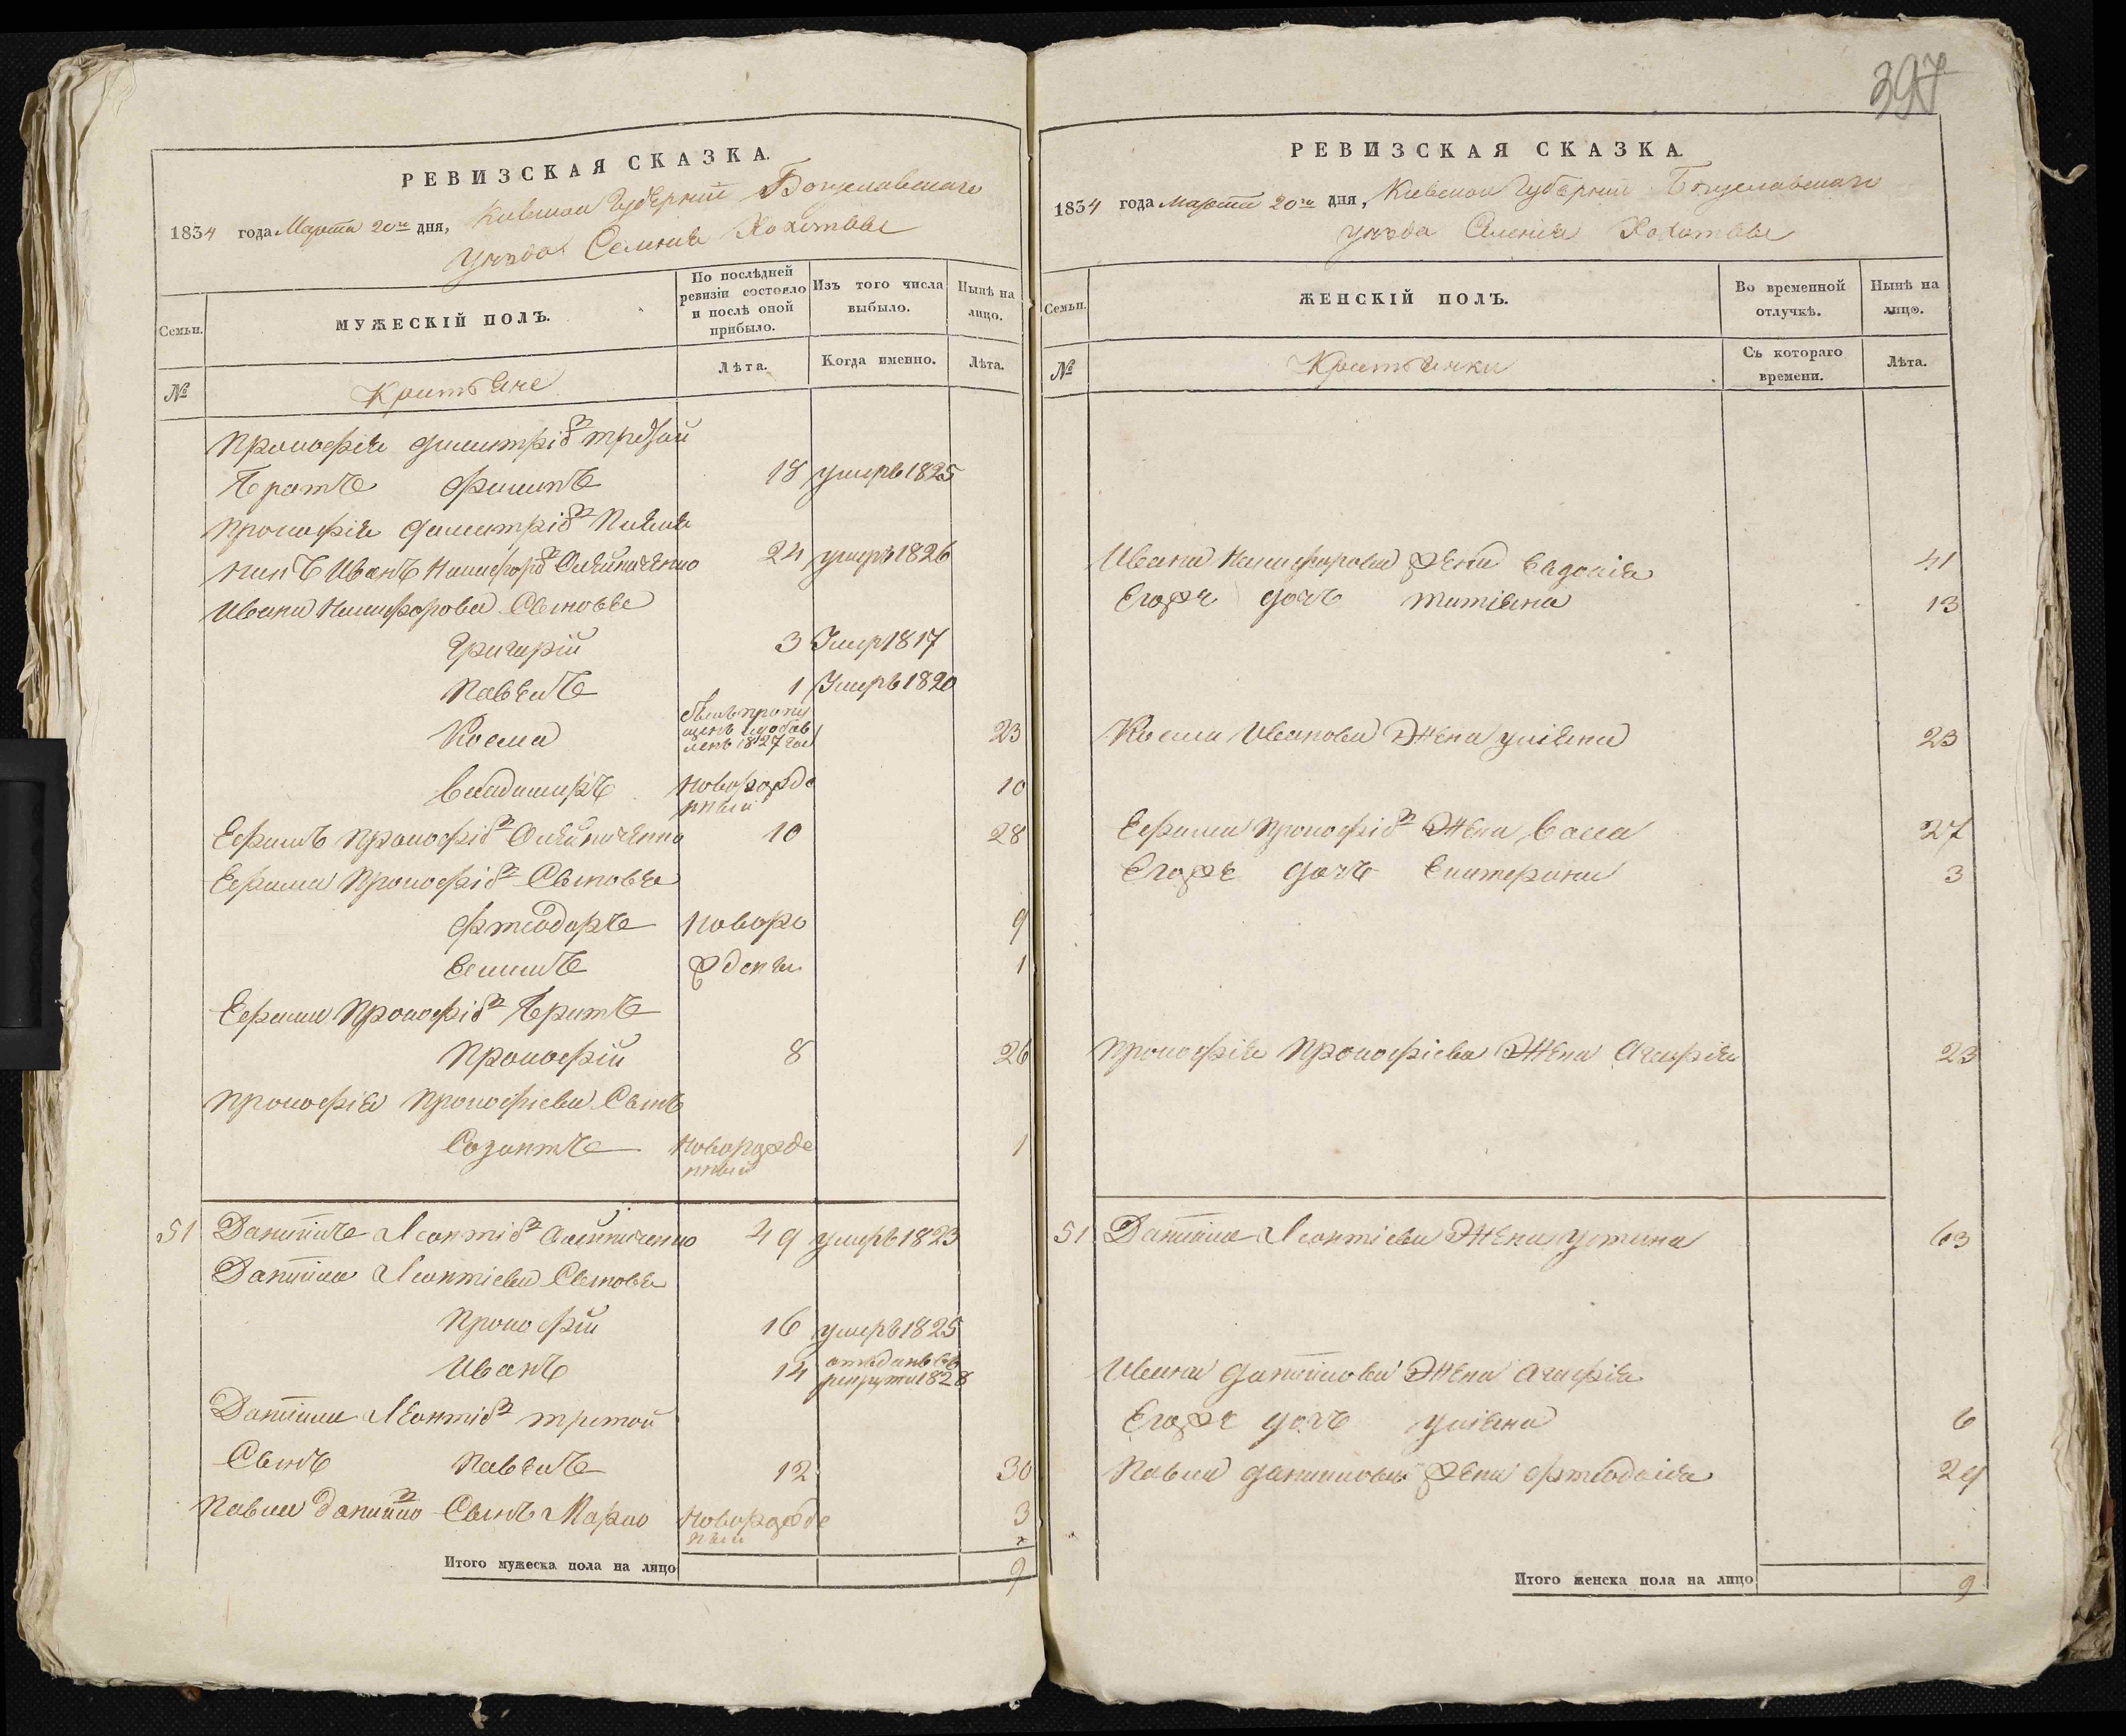 397
РЕВИЗСКАЯ СКАЗКА.
1834 года Марта 20го дня, Киевской Губерніи Богуславскаго
уѣзда Селенія Хохитвы
Семьи.
МУЖЕСКІЙ ПОЛЪ.
По послѣдней ревизіи состояло и послѣ оной прибыло.
Изъ того числа выбыло.
Нынѣ на лицо.
№
Крестьяне
Лѣта.
Когда именно.
Лѣта.
Прокофія Димитріева третой
Братъ Филипъ 18 умеръ 1825
Прокофія Димитріева Племя
никъ Иванъ Никифоров Олейниченко 24 умеръ 1826
Ивана Никифорова Сыновья
Григорій 3 Умер 1817
Павелъ 1 Умеръ 1820
Козма былъ пропу
щенъ и добав
ленъ 1827 год 23
Владимиръ новорожде
нный 10
Ефимъ Прокофіев Олейниченко 10 28
Ефима Прокофіев Сыновья
Фтеодоръ Новоро 9
Семинъ жденые 1
Ефима Прокофіев Братъ
Прокофій 8 26
Прокофія Прокофіева Сынъ
Созонтъ Новорожде
нный 1
51 Даниилъ Леонтіев Олейниченко 49 умеръ 1823
Даниила Леонтіева Сыновья
Прокофій 16 умеръ 1825
Иванъ 14 отъданъ въ
рекруты 1828
Даниила Леонтіев третой
Сынъ Павелъ 12 30
Павла Данило Сынъ Марко Новорожде
ный 3
Итого мужеска пола на лицо 9
РЕВИЗСКАЯ СКАЗКА.
1834 года Марта 20го дня, Киевской Губерніи Богуславскаго
уѣзда Селенія Хохитвы
Семьи.
ЖЕНСКІЙ ПОЛЪ.
Во временной отлучкѣ.
Нынѣ на лицо.
№
Крестьянки
Съ котораго времени.
Лѣта.
Ивана Никифорова жена Евдокія 41
Егоже дочь Татіяна 13
Козмы Иванова Жена Уліяна 23
Ефима Прокофіев Жена Васса 27
Егоже дочь Екатерина 3
Прокофія Прокофіева Жена Агафія 23
51 Даниила Леонтіева Жена Устина 63
Ивана Даниилова Жена Агафія
Егоже дочь Уліяна 6
Павла Данилова жена Фтеодосія 29
Итого женска пола на лицо 9